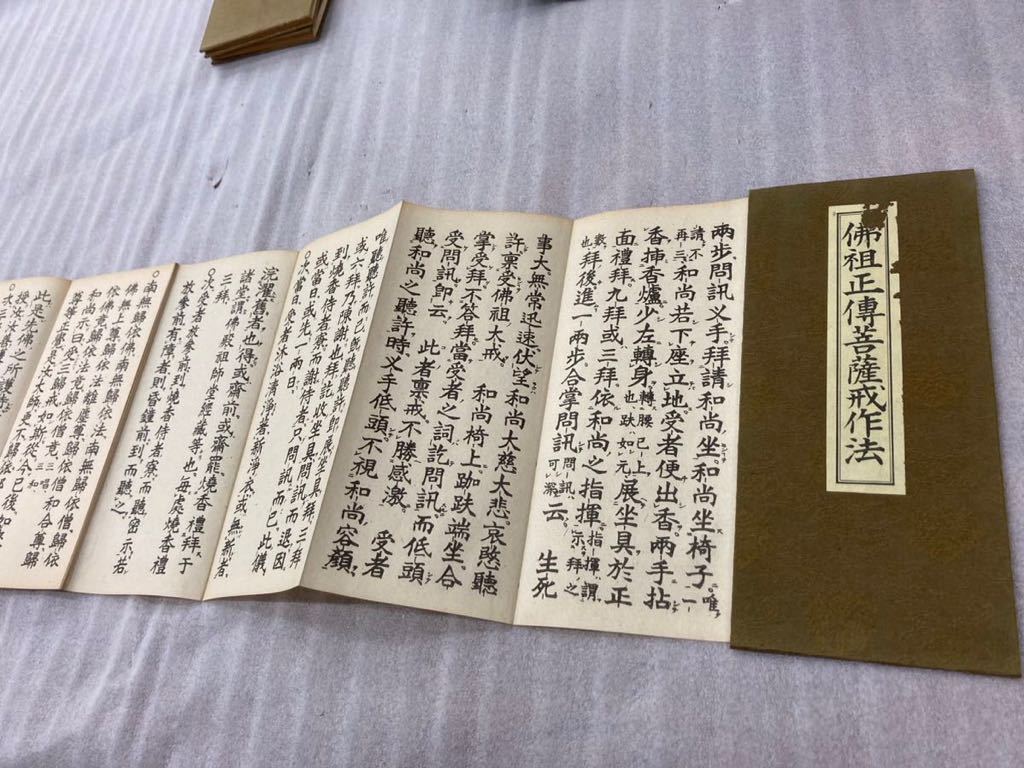 佛祖正傳菩薩戒作法
兩步問訊叉手拜請和尚坐和尚坐椅子唯一
請不再三和尚若下座立地受者便出香兩手拈
香挿香爐少左轉身轉腰已上也趺如元展坐具於正
面禮拜九拜或三拜依和尚之指揮指揮謂示拜之
數也拜後進一兩步合掌問訊問訊可深云生死
事大無常迅速伏望和尚大慈大悲哀愍聽
許禀受佛祖大戒和尚椅上跏趺端坐合
掌受拜不答拜當受者之詞訖問訊而低頭
受問訊卽云此者禀戒不勝感激受者
聽和尚之聽許時叉手低頭不視和尚容顏
唯聽聽許而已旣聽聽許卽展坐具三拜
或六拜乃陳謝也拜訖收坐具問訊而退因
到燒香侍者寮而謝侍者只問訊而已此儀
或當日或先一兩日
○次當日受者沐浴清淨著新淨衣或無新者
浣濯舊者也得或齋前或齋罷燒香禮拜于
諸聖謂佛殿祖師堂經藏等也每處燒香禮
三拜
○次受者放參前到燒香侍者寮而聽密示若
放參時有障者則昏鐘前到而聽之
○南無歸依佛南無歸依法南無歸依僧歸依
佛無上尊歸依法離塵尊歸依僧和合尊歸
依佛竟歸依法竟歸依僧竟三唱三和
和尚示曰受三歸戒如斯從今已後
此是先佛之所護持